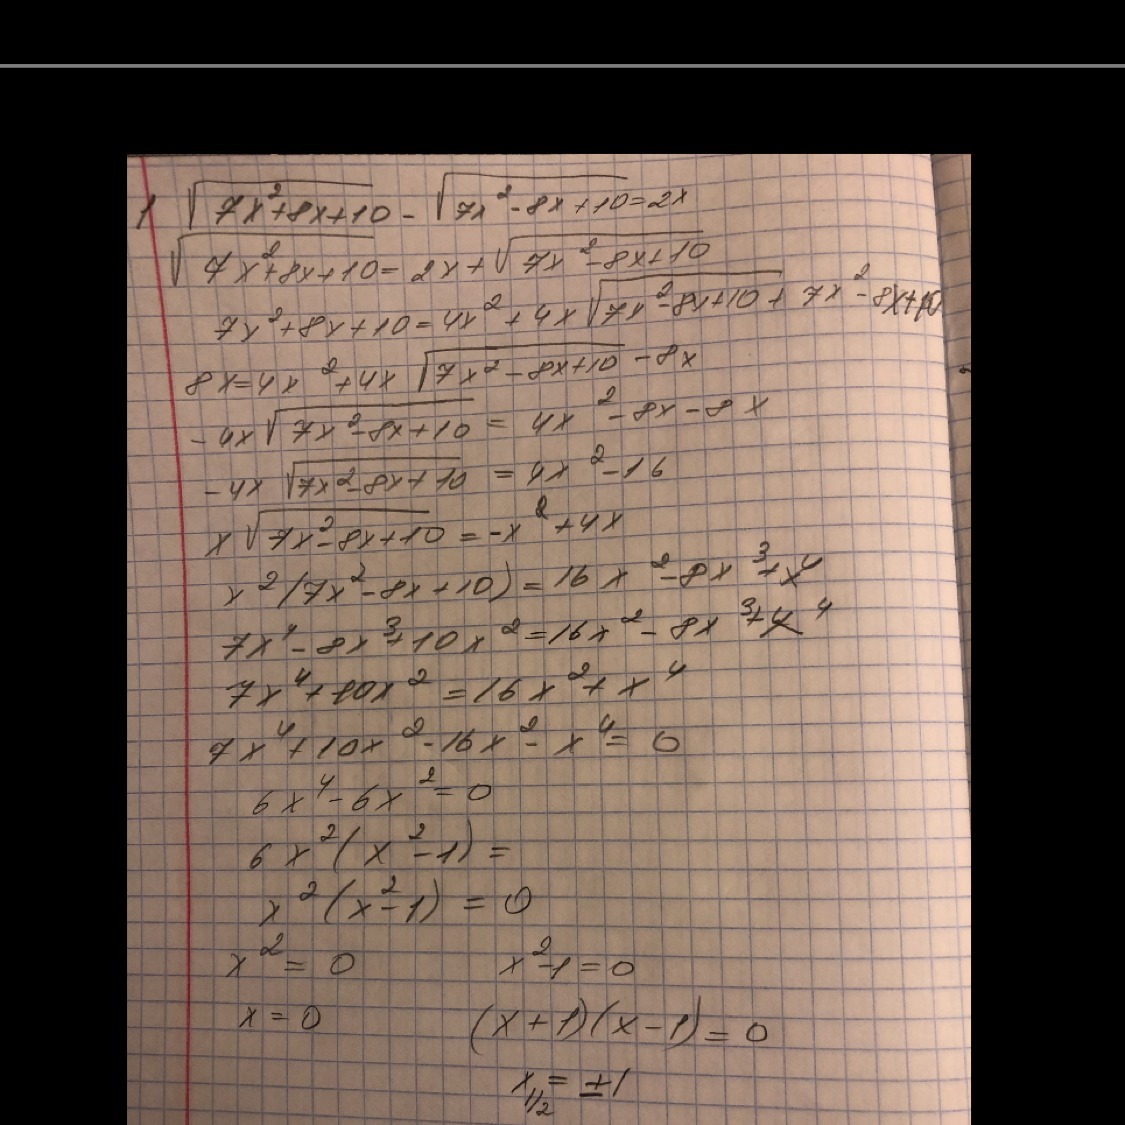 1 √(7x²+8x+10) - √(7x²-8x+10)=2x
√(7x²+8x+10)= 2x+√(7x²-8x+10)
7x²+8x+10=4x²+4x√(7x²-8x+10)+7x²-8x+10
8x=4x²+4x√(7x²-8x+10)-8x
-4x√(7x²-8x+10)= 4x²-8x-8x
-4x√(7x²-8x+10) = 4x²-16
x√(7x²-8x+10)=-x²+4x
x²(7x²-8x+10)=16x²-8x³+x⁴
7x⁴-8x³+10x²=16x²-8x³+x⁴
7x⁴+10x²=16x²+x⁴
7x⁴+10x²-16x²-x⁴= 0
6x⁴-6x²=0
6x²(x²-1)=
x²(x²-1) = 0
x²= 0 x²-1=0
x=0 (x+1)(x-1)=0
x1/2= ±1